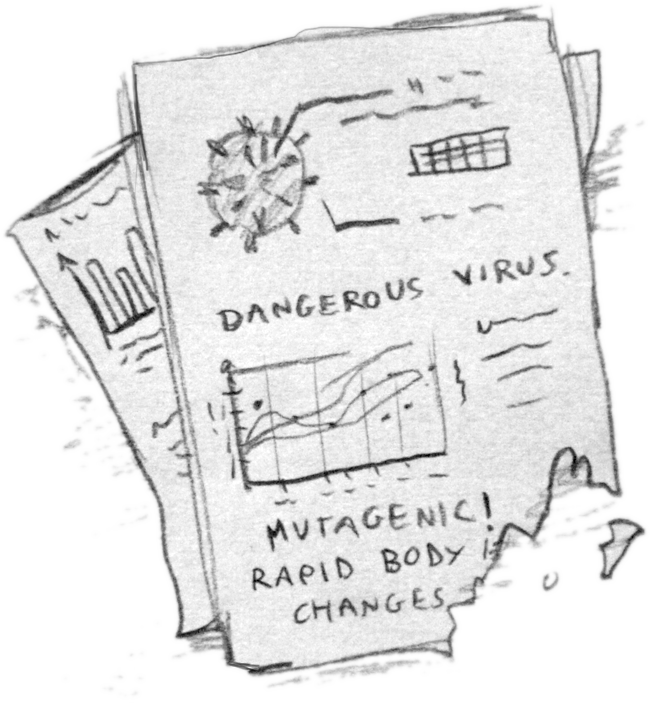 DANGEROUS VIRUS.
MUTAGENIC!
RAPID BODY
CHANGES